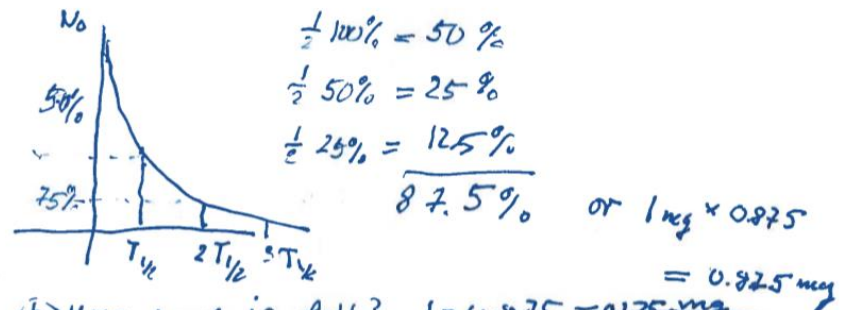 N₀
50%
75%
T½ 2T½ 3T½
½ 100% = 50 %
½ 50% = 25 %
½ 25% = 12.5%
87.5% or 1 mg × 0.875
= 0.875 mg